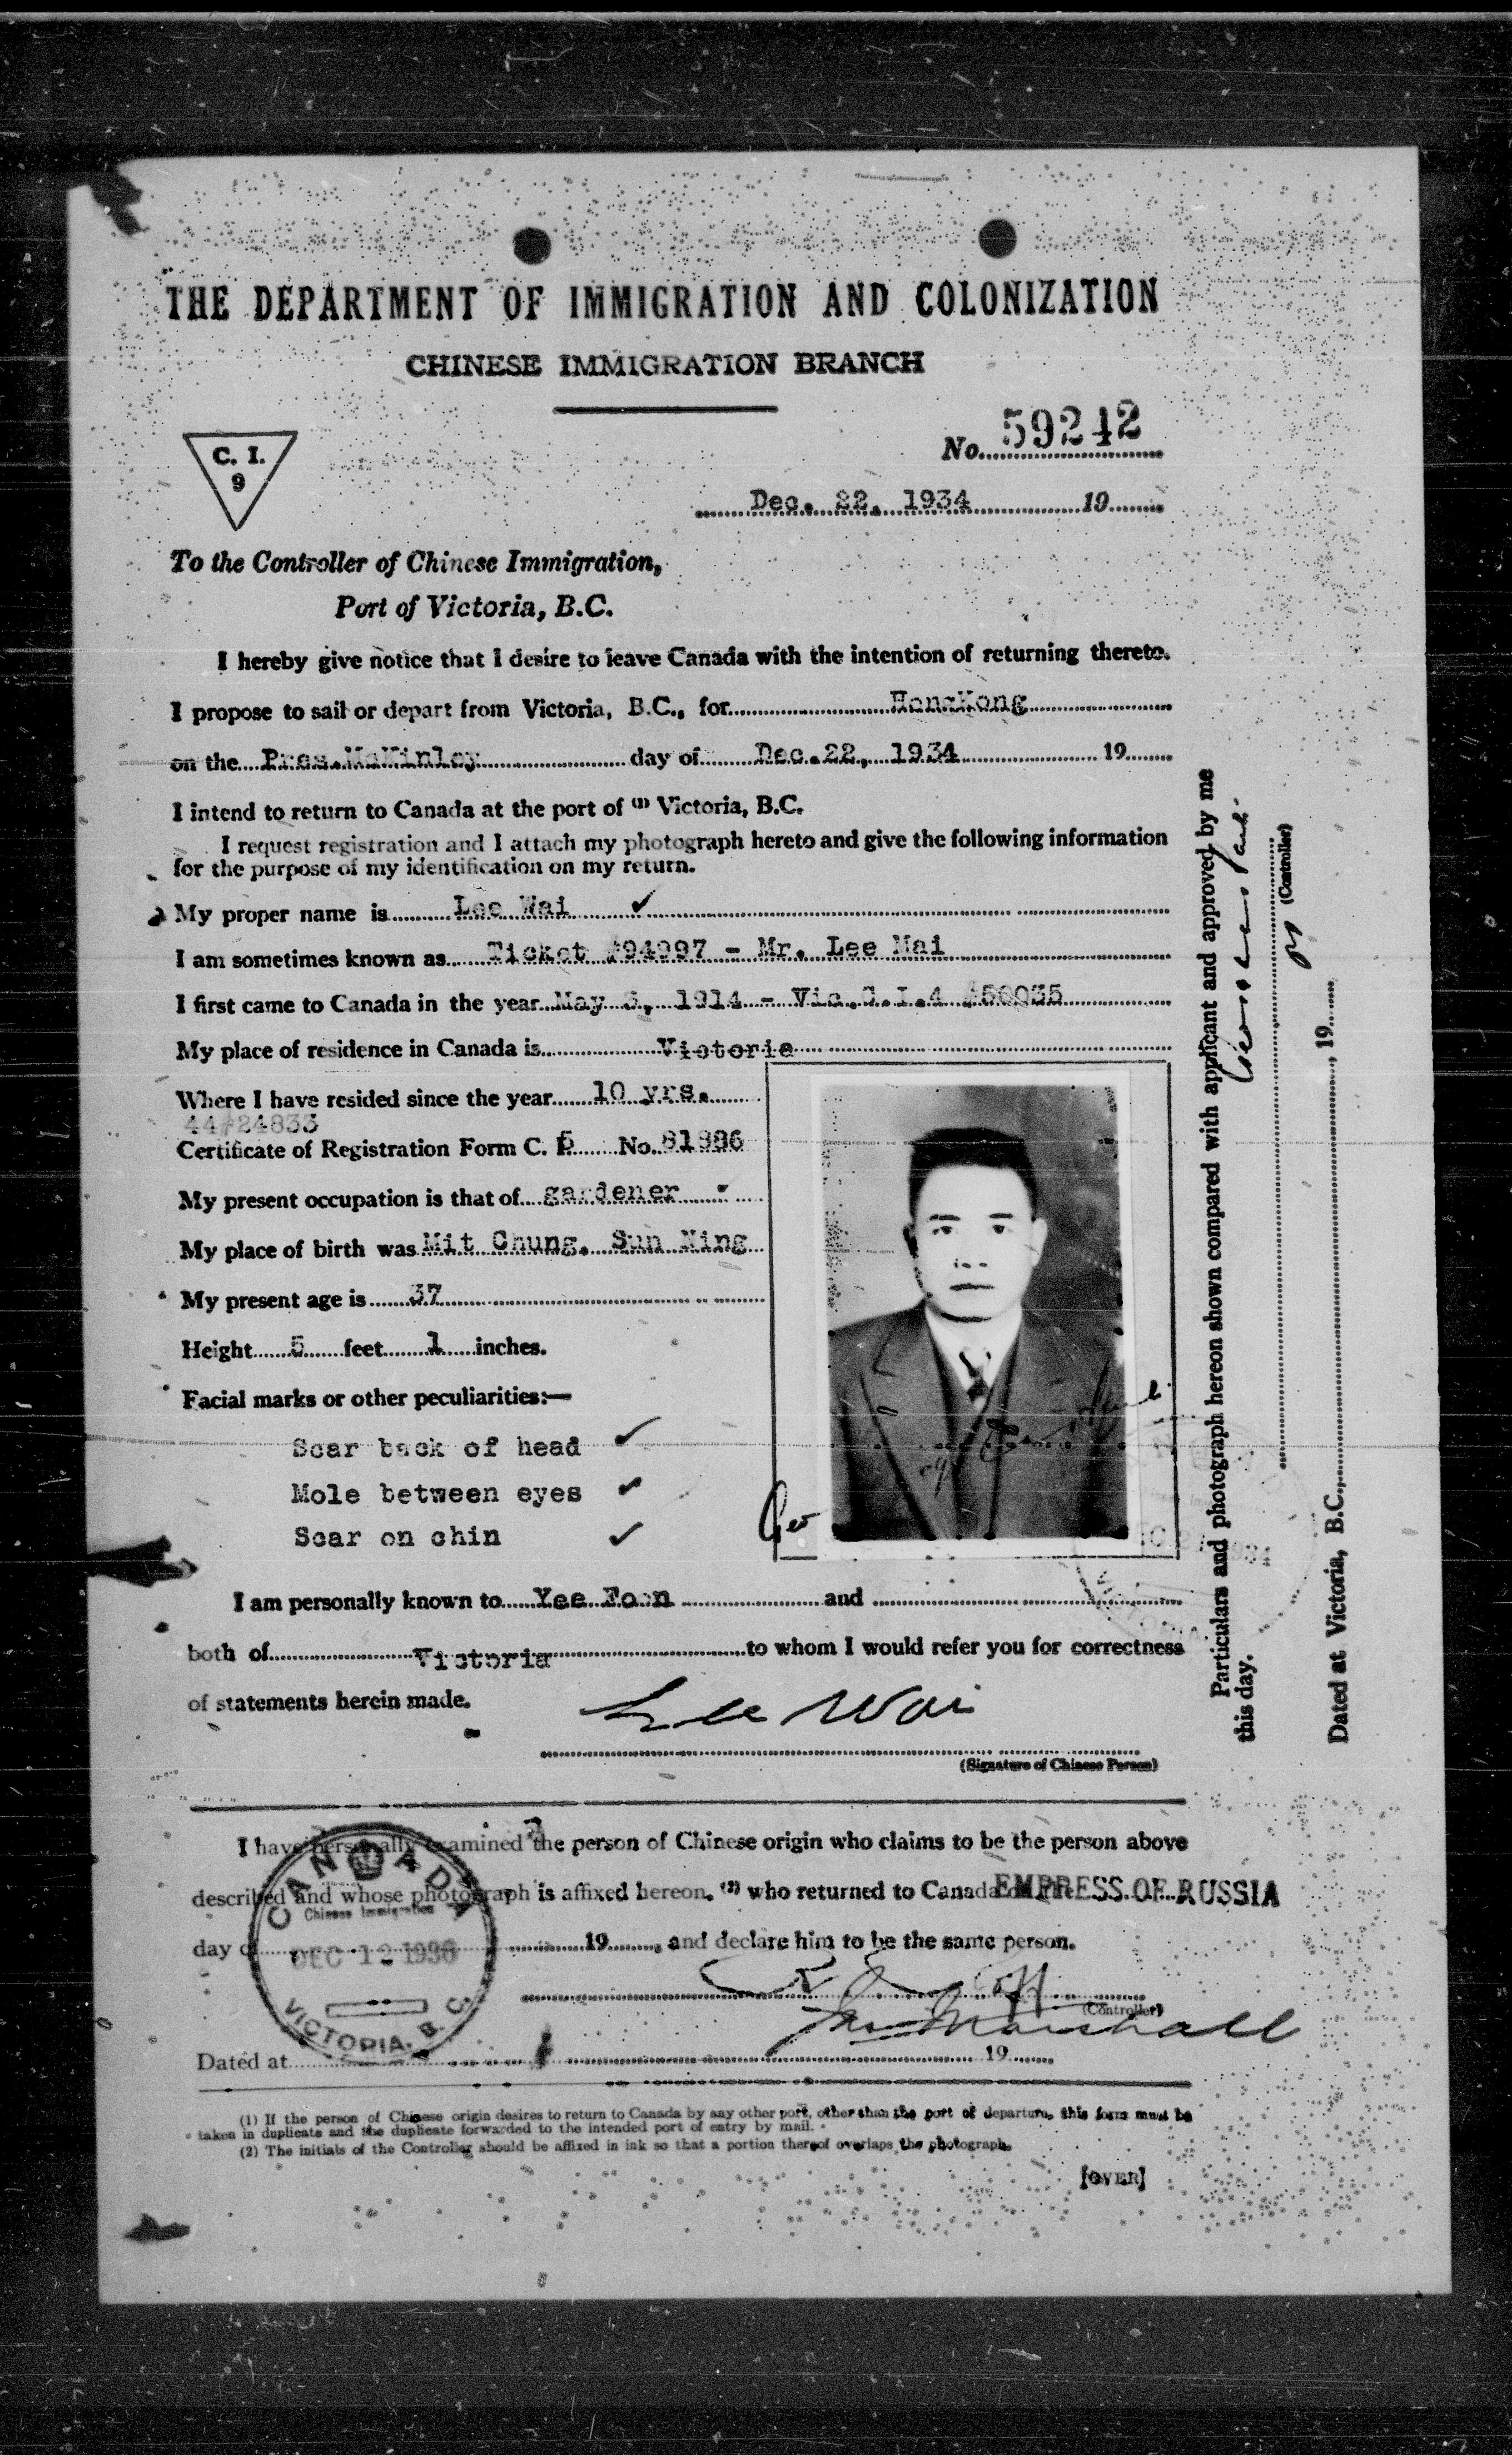 THE DEPARTMENT OF IMMIGRATION AND COLONIZATION
CHINESE IMMIGRATION BRANCH
C. I.
9
No. 59242
Dec. 22, 1934 19
To the Controller of Chinese Immigration,
Port of Victoria, B.C.
I hereby give notice that I desire to leave Canada with the intention of returning thereto.
I propose to sail or depart from Victoria, B.C., for HongKong
on the Pres.McKinley day of Dec.22, 1934 19
I intend to return to Canada at the port of (1) Victoria, B.C.
I request registration and I attach my photograph hereto and give the following information
for the purpose of my identification on my return.
My proper name is Lee Wai ✓
I am sometimes known as Ticket #94997 - Mr. Lee Mai
I first came to Canada in the year May 3, 1914 - Via.C.I.4 #50035
My place of residence in Canada is Victoria
Where I have resided since the year 10 yrs.
44#24833
Certificate of Registration Form C. I. 5 No. 81986
My present occupation is that of gardener
My place of birth was Mit Chung, Sun Ning
My present age is 37
Height 5 feet 1 inches.
Facial marks or other peculiarities:—
Scar back of head ✓
Mole between eyes ✓
Scar on chin ✓
Geo
I am personally known to Yee Foon and
both of Victoria to whom I would refer you for correctness
of statements herein made.
Lee Wai
(Signature of Chinese Person)
I have personally examined the person of Chinese origin who claims to be the person above
described and whose photograph is affixed hereon, (2) who returned to Canada on the EMPRESS OF RUSSIA
day of 19 , and declare him to be the same person.
CANADA
Chinese Immigration
DEC 12 1936
VICTORIA, B. C.
(Controller)
Marshall
Dated at 19
(1) If the person of Chinese origin desires to return to Canada by any other port, other than the port of departure, this form must be
taken in duplicate and the duplicate forwarded to the intended port of entry by mail.
(2) The initials of the Controller should be affixed in ink so that a portion thereof overlaps the photograph.
[OVER]
Particulars and photograph hereon shown compared with applicant and approved by me
this day.
(Controller)
Dated at Victoria, B.C., , 19